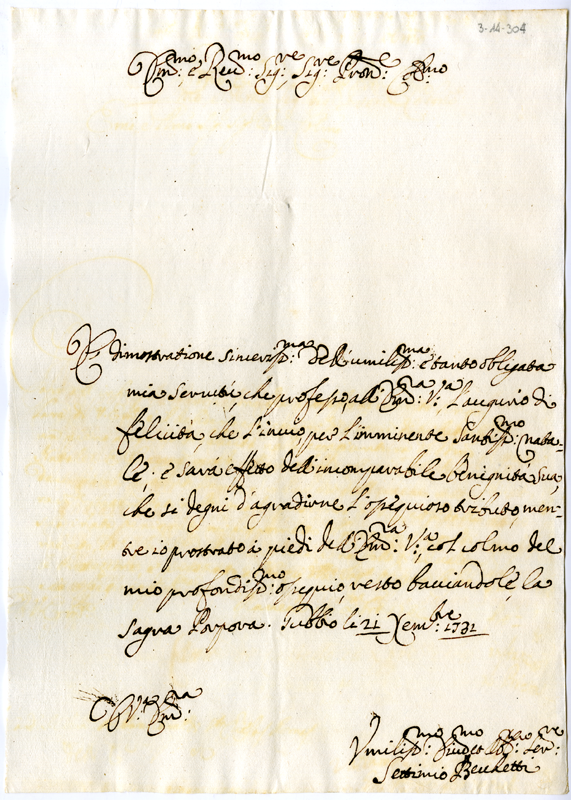 3-14-304
Em:mo, e Reu:mo Sig:re, Sig:re Pron:e
È dimostratione sinceriss:ma dell'umiliss:ma e tanto obligata
mia servitù, che professo, all'Em:za V:a l'augurio di
felicità, che l'inuio, per l'imminente Santiss:mo nata-
le, e sarà effetto dell'incomparabile benignità sua,
che si degni d'agradirne l'ossequioso tributo, men-
tre io prostrato a piedi dell'Em:za V:a, col colmo del
mio profondiss:mo ossequio, resto bacciandole, la
sagra Porpora. Gubbio li 21 Xembre 1731
V:a Em:za
Vmiliss:mo Diuot:mo Ser:re
Settimio Beechetti